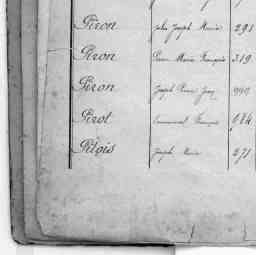 Piron Jules Joseph Marie 291
Piron Pierre Marie François 319
Piron Joseph Pierre Jean 990
Pirot Emmanuel François 684
Pitois Joseph Marie 271